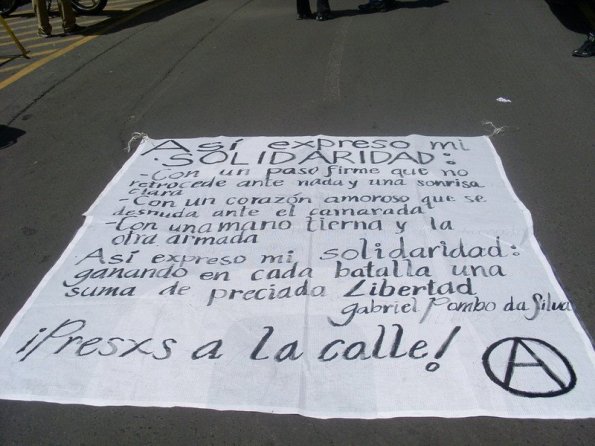 Así expreso mi
SOLIDARIDAD:
-Con un paso firme que no
retrocede ante nada y una sonrisa
clara
-Con un corazón amoroso que se
desnuda ante el camarada
-Con una mano tierna y la
otra armada
Así expreso mi solidaridad:
ganando en cada batalla una
suma de preciada Libertad
gabriel Pombo da Silva
¡Presxs a la calle!
A